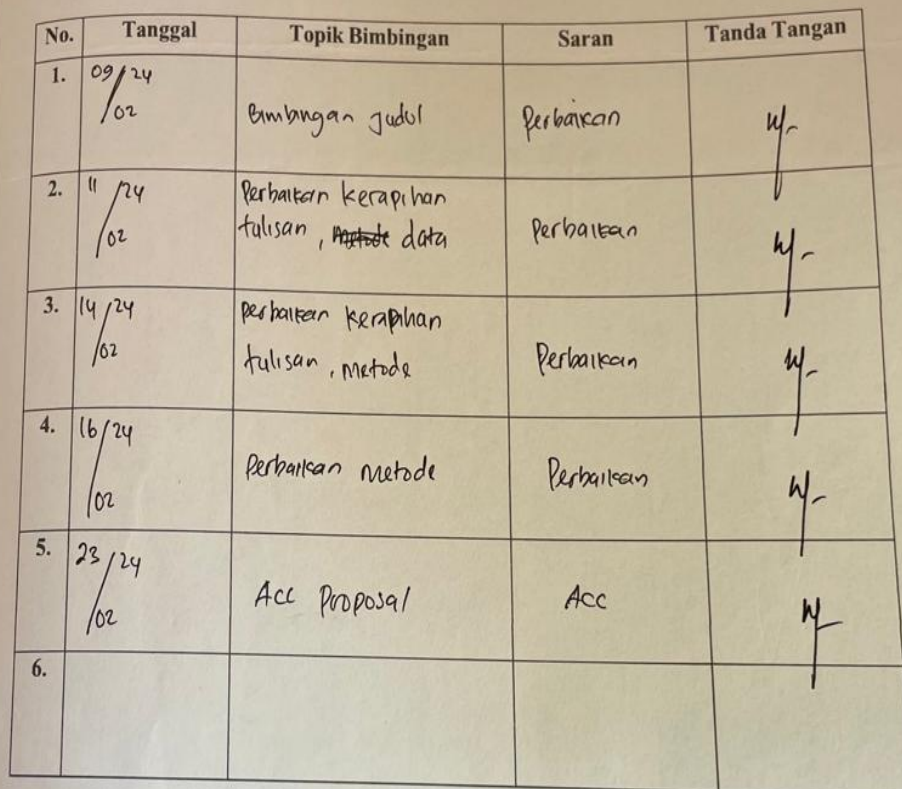 No. Tanggal Topik Bimbingan Saran Tanda Tangan
1. 09/24
/02 Bimbingan judul Perbaikan
2. 11/24 Perbaikan kerapihan
/02 tulisan, metode data Perbaikan
3. 14/24 perbaikan kerapihan
/02 tulisan, metode Perbaikan
4. 16/24
/02 Perbaikan metode Perbaikan
5. 23/24
/02 Acc Proposal Acc
6.